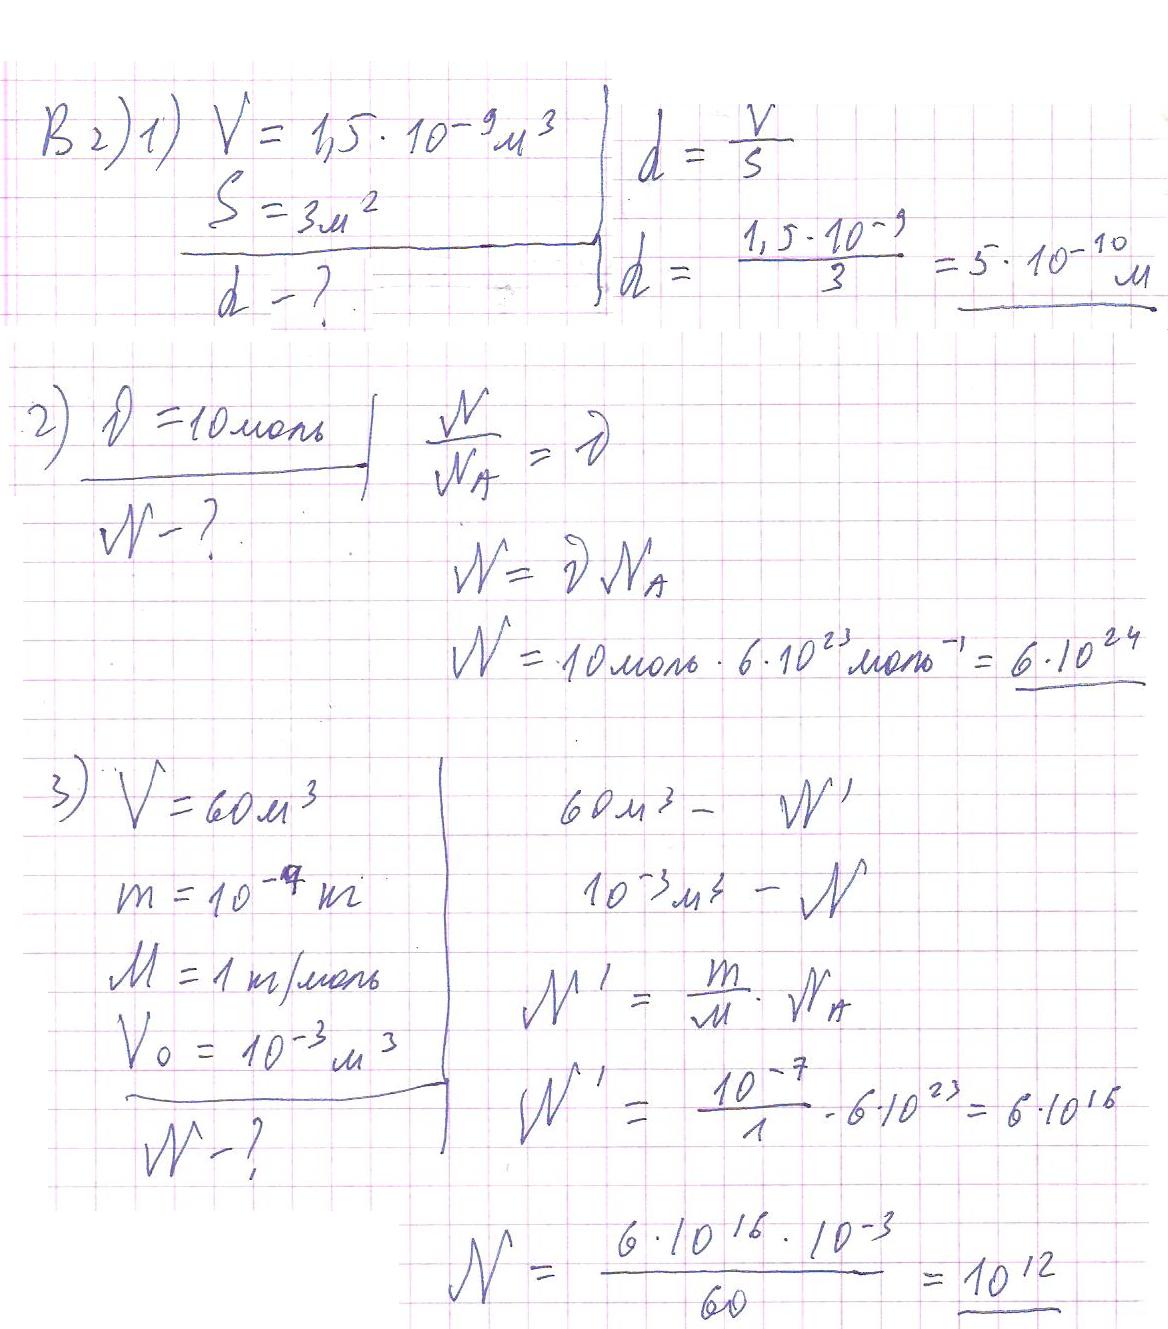 В 2) 1) V = 1,5 · 10⁻⁹ м³
S = 3м²
d - ?
d = V/S
d = 1,5 · 10⁻⁹/3 = 5 · 10⁻¹⁰ м
2) ν = 10 моль
N - ?
N/N_A = ν
N = ν N_A
N = 10 моль · 6 · 10²³ моль⁻¹ = 6 · 10²⁴
3) V = 60 м³
m = 10⁻⁷ кг
M = 1 кг/моль
V₀ = 10⁻³ м³
N - ?
60 м³ - N'
10⁻³ м³ - N
N' = m/M · N_A
N' = 10⁻⁷/1 · 6 · 10²³ = 6 · 10¹⁶
N = 6 · 10¹⁶ · 10⁻³/60 = 10¹²